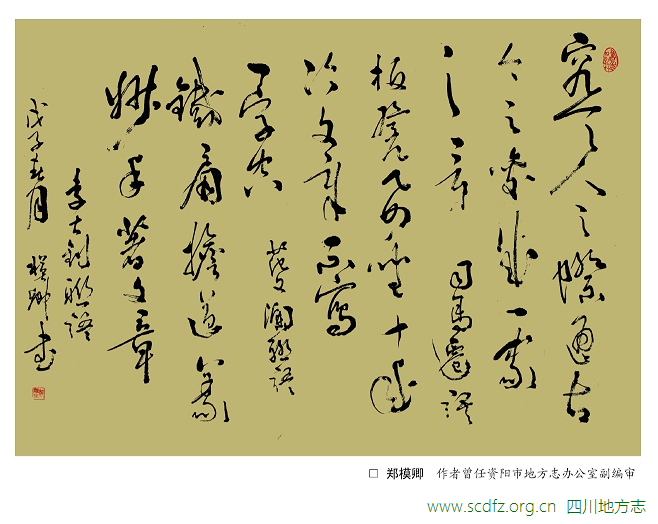 究天人之際通古
今之變成一家
之言 司馬遷語
板凳坐十年
冷文章不寫
一字空 范文瀾聯語
鐵肩擔道義
妙手著文章
李大釗聯語
戊子春月 模卿書
□ 郑模卿 作者曾任资阳市地方志办公室副编审
www.scdfz.org.cn 四川地方志